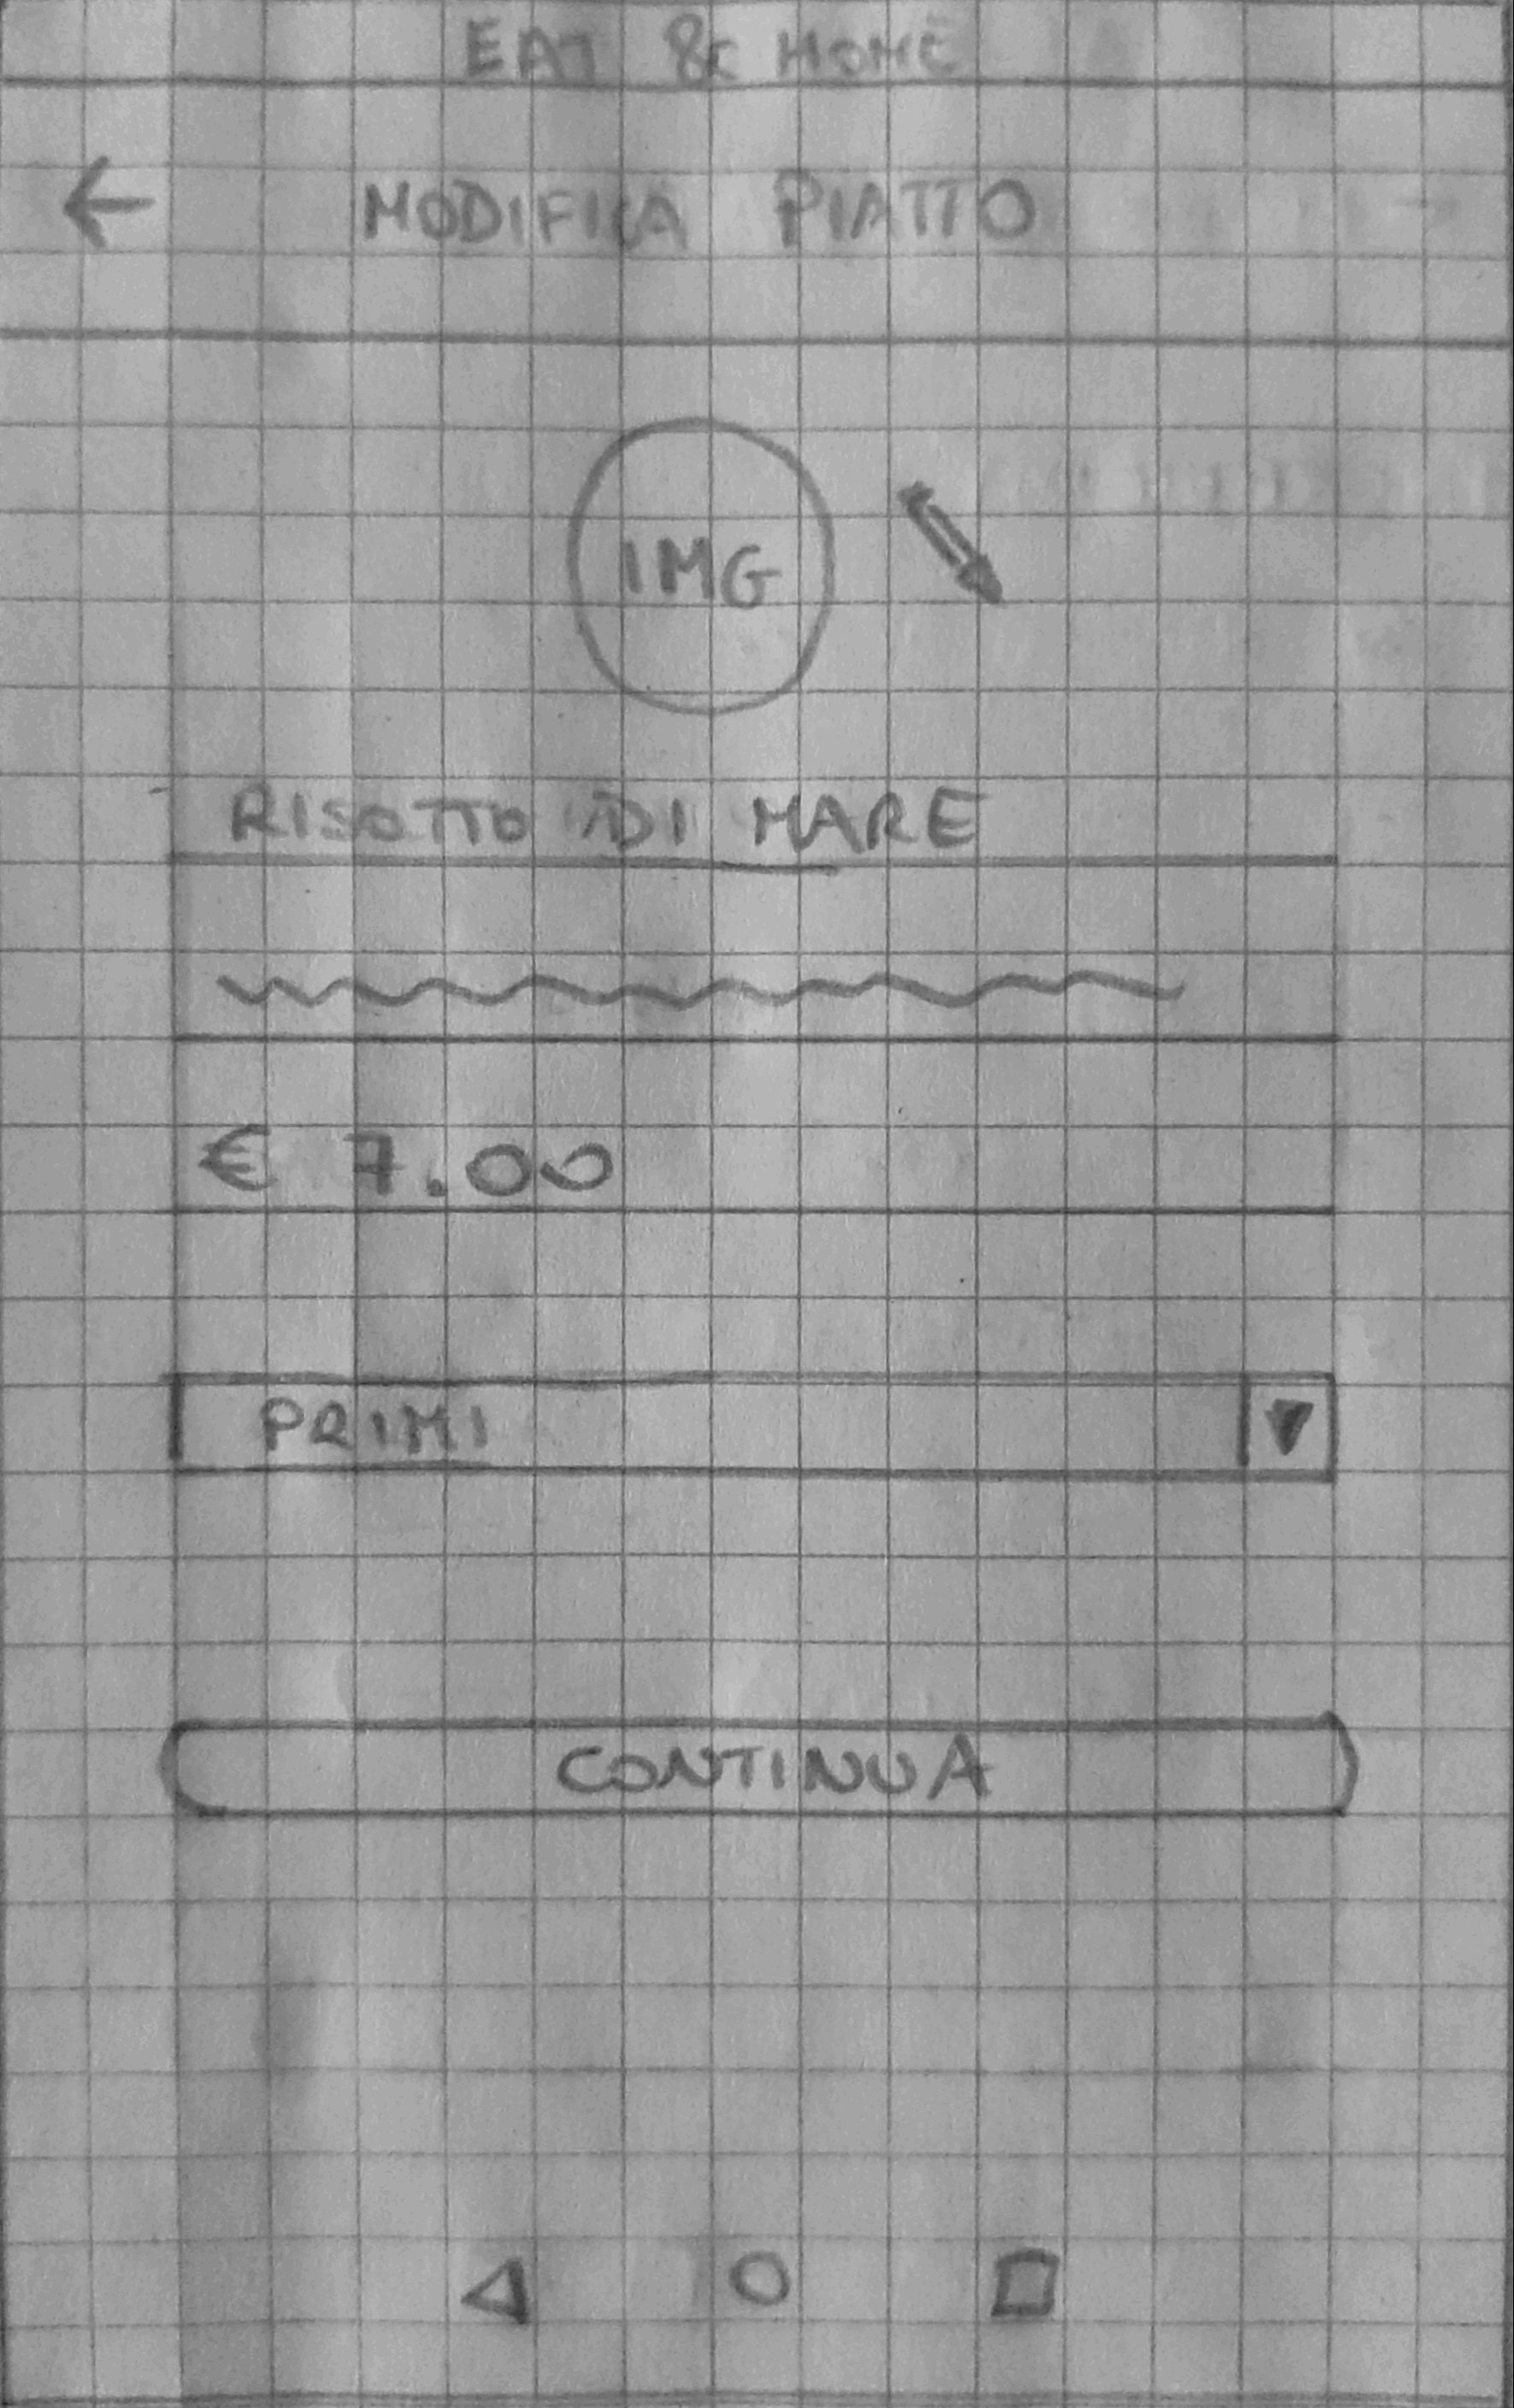 EAT & HOME
MODIFICA PIATTO
IMG
RISOTTO DI MARE
€ 7.00
PRIMI
CONTINUA